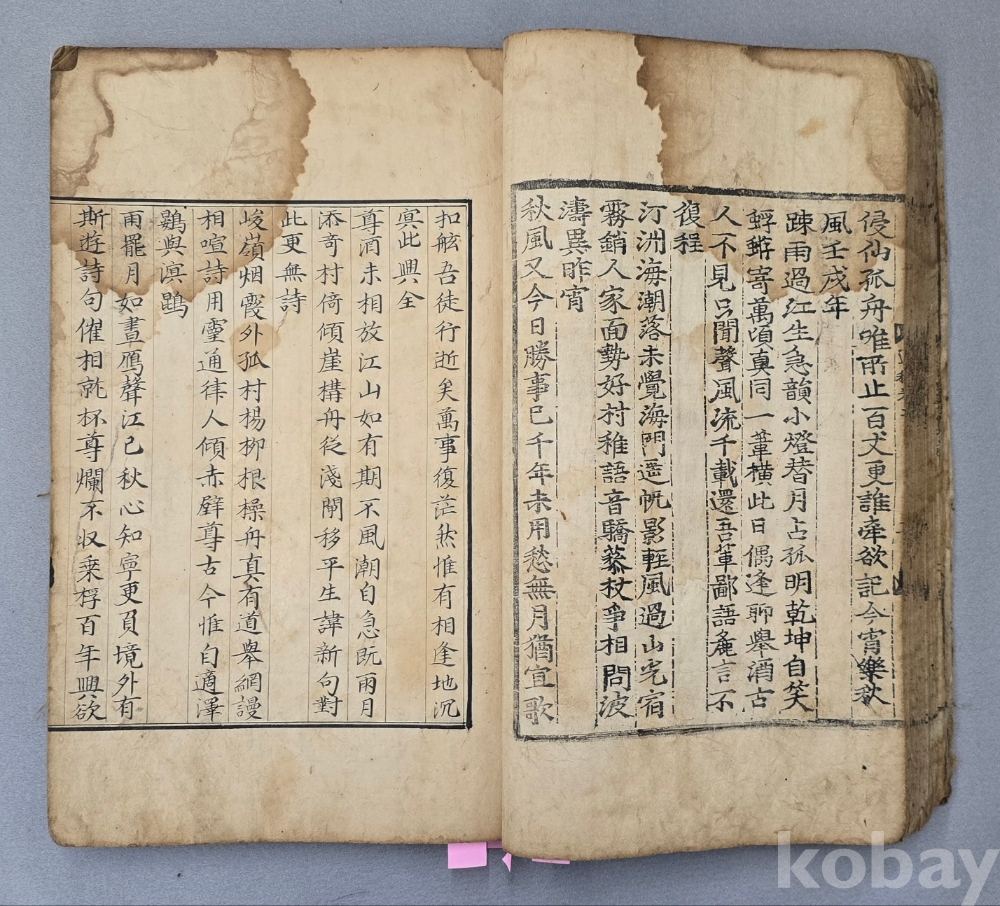 侵仙孤舟唯所止百丈更誰牽欲記今宵樂秋
風壬戌年
疎雨過江生急韻小燈替月占孤明乾坤自笑
蜉蝣寄萬頃真同一葦橫此日偶逢聊擧酒古
人不見只聞聲風流千載還吾輩鄙語麁言不
復程
汀洲海潮落未覺海門遥帆影輕風過山光宿
霧銷人家面勢好村稚語音驕藜杖爭相問波
濤異昨宵
秋風又今日勝事已千年未用愁無月猶宜歌
扣舷吾徒行逝矣萬事復茫然惟有相逢地沉
冥此興全
尊酒未相放江山如有期不風潮自急旣雨月
添奇村倚傾崖構舟從淺閘移平生諱新句對
此更無詩
峻嶺烟霞外孤村楊柳根操舟真有道擧網謾
相喧詩用靈通律人傾赤壁尊古今惟自適澤
鷃與溟鵾
雨罷月如晝鴈聲江已秋心知寧更負境外有
斯遊詩句催相就杯尊爛不收乘桴百年興欲
kobay